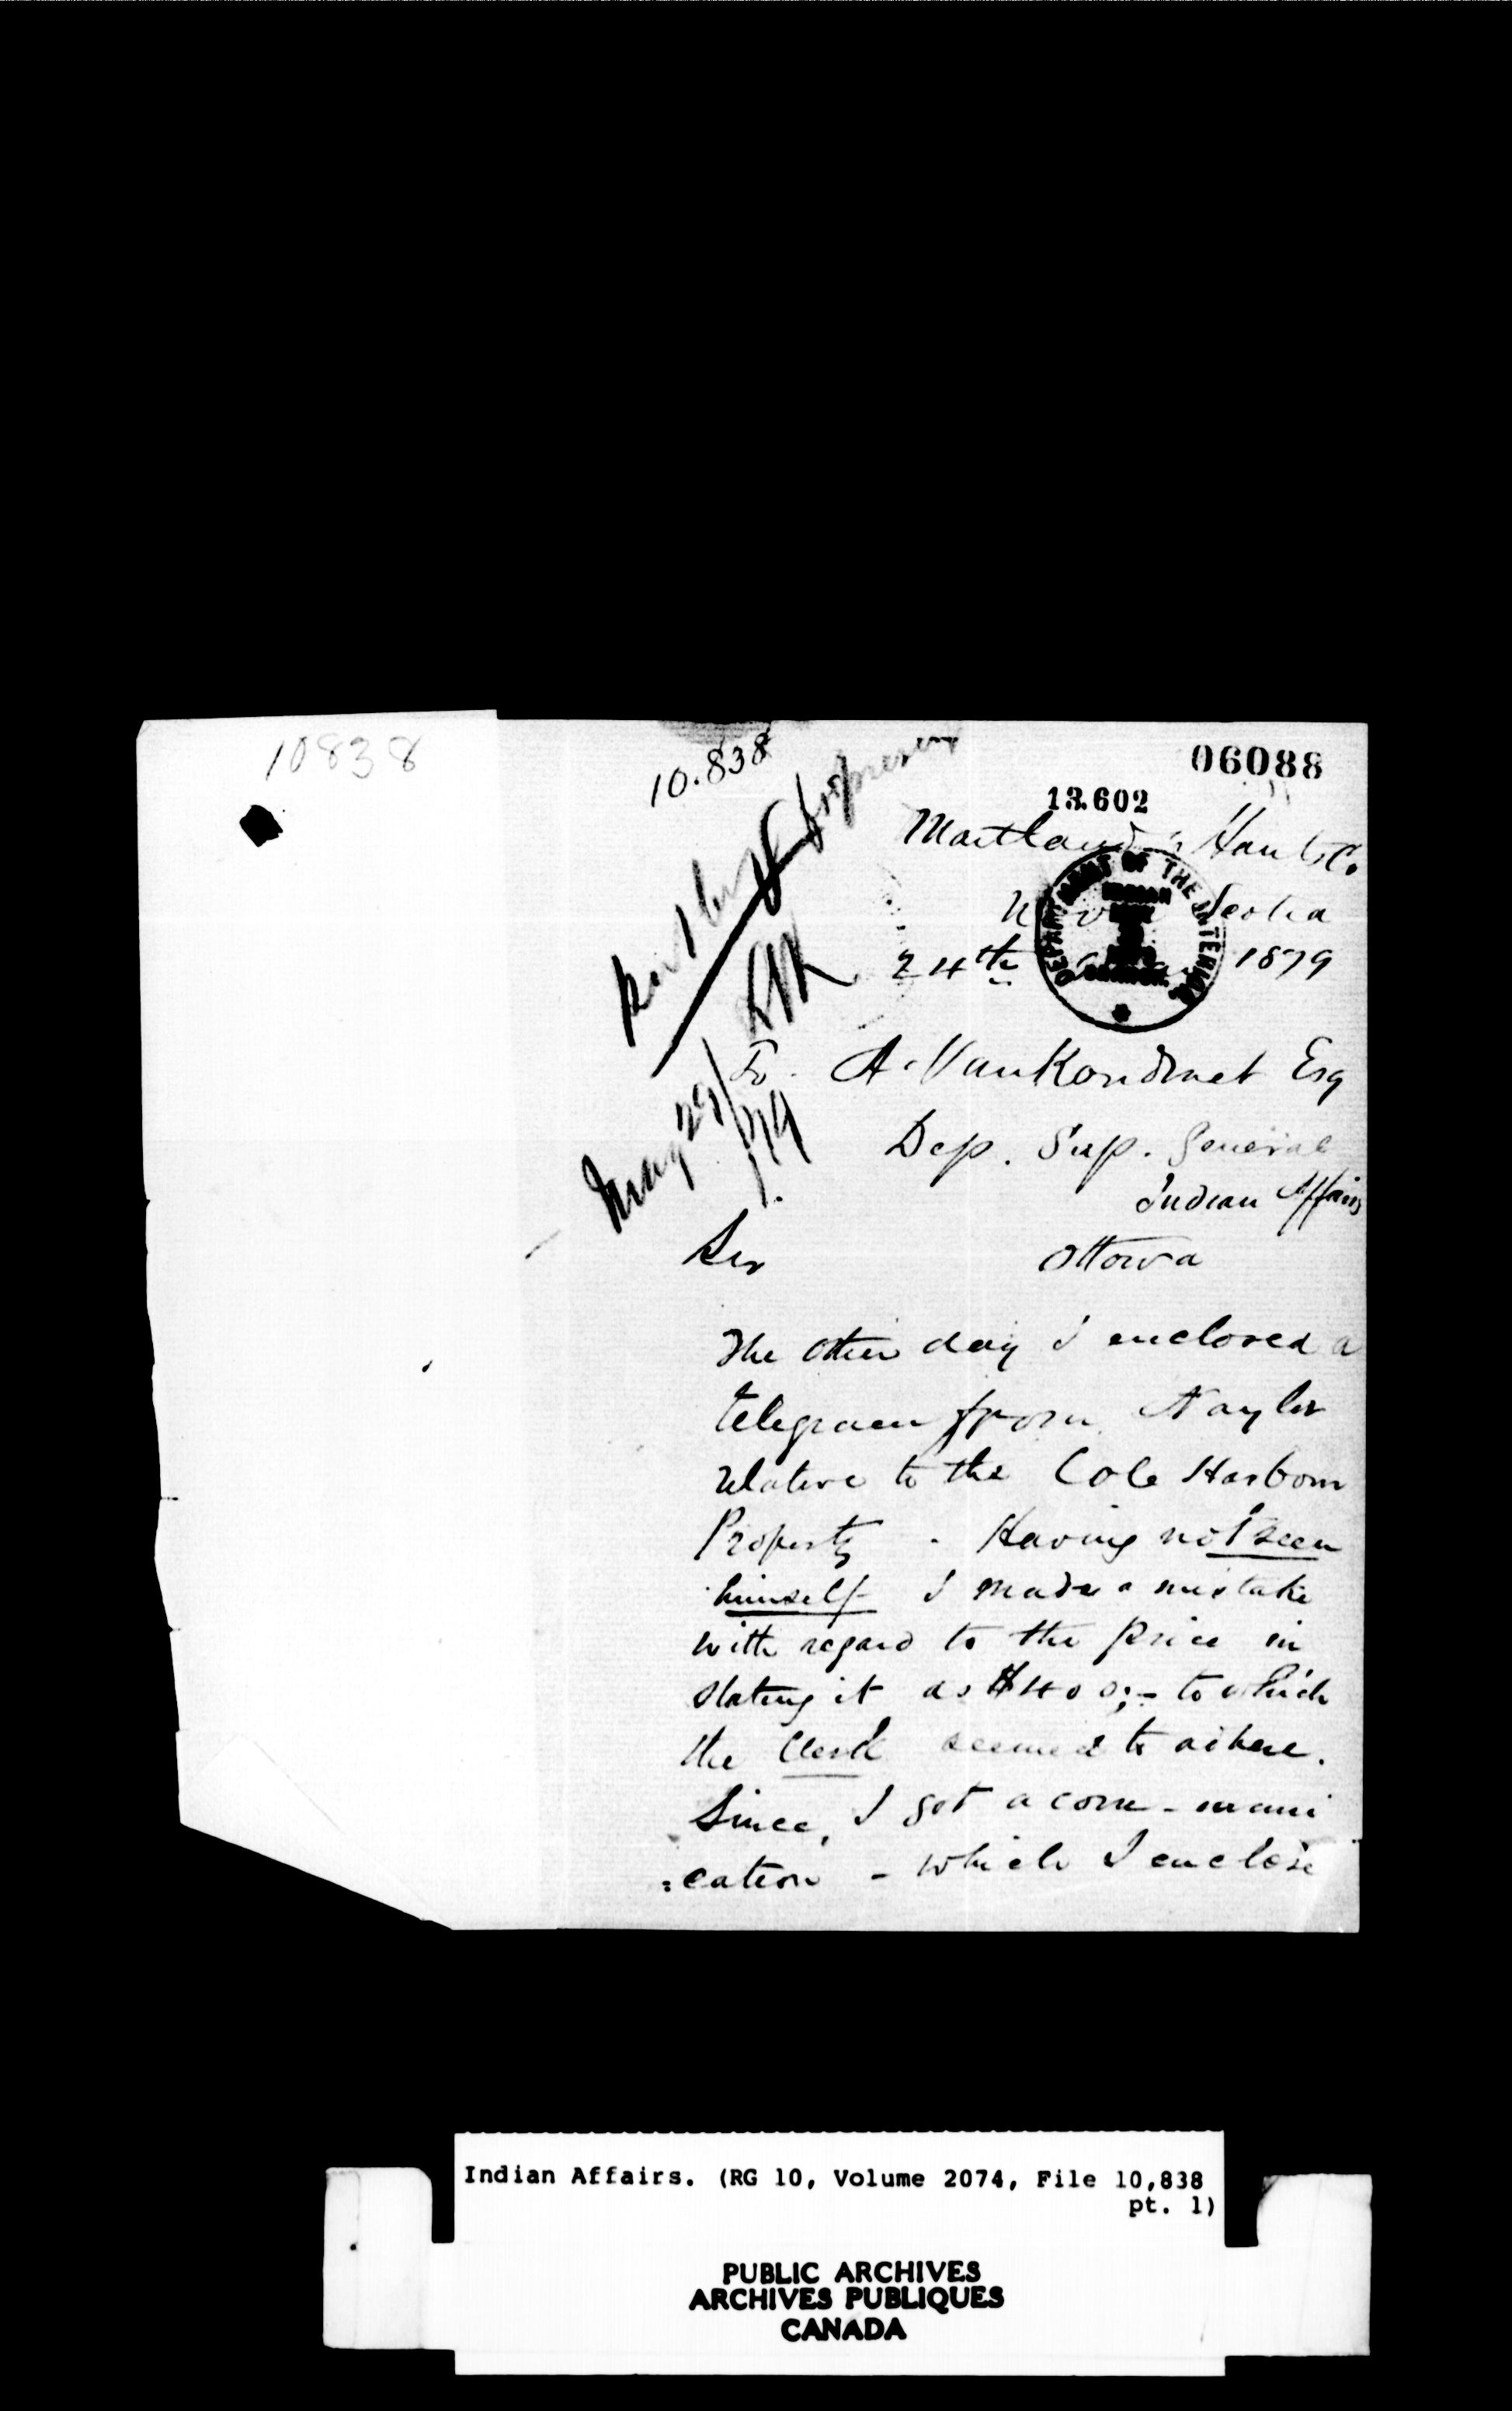 10838
10.838
06088
13.602
Maitland, Hants Co.
Nova Scotia
24th 1879
DEPARTMENT OF THE INTERIOR
INDIAN
To. A. VanKoudnet Esq
Dep. Sup. General
Indian Affairs
Ottowa
May 29/79
Sir
The other day I enclosed a
telegram from Naylor
relative to the Cole Harbour
Property . Having not seen
himself I made a mistake
with regard to the price in
stating it as $400;- to which
the Clerk seemed to adhere.
Since, I got a com-muni
:cation - which I enclose
Indian Affairs. (RG 10, Volume 2074, File 10,838
pt. 1)
PUBLIC ARCHIVES
ARCHIVES PUBLIQUES
CANADA